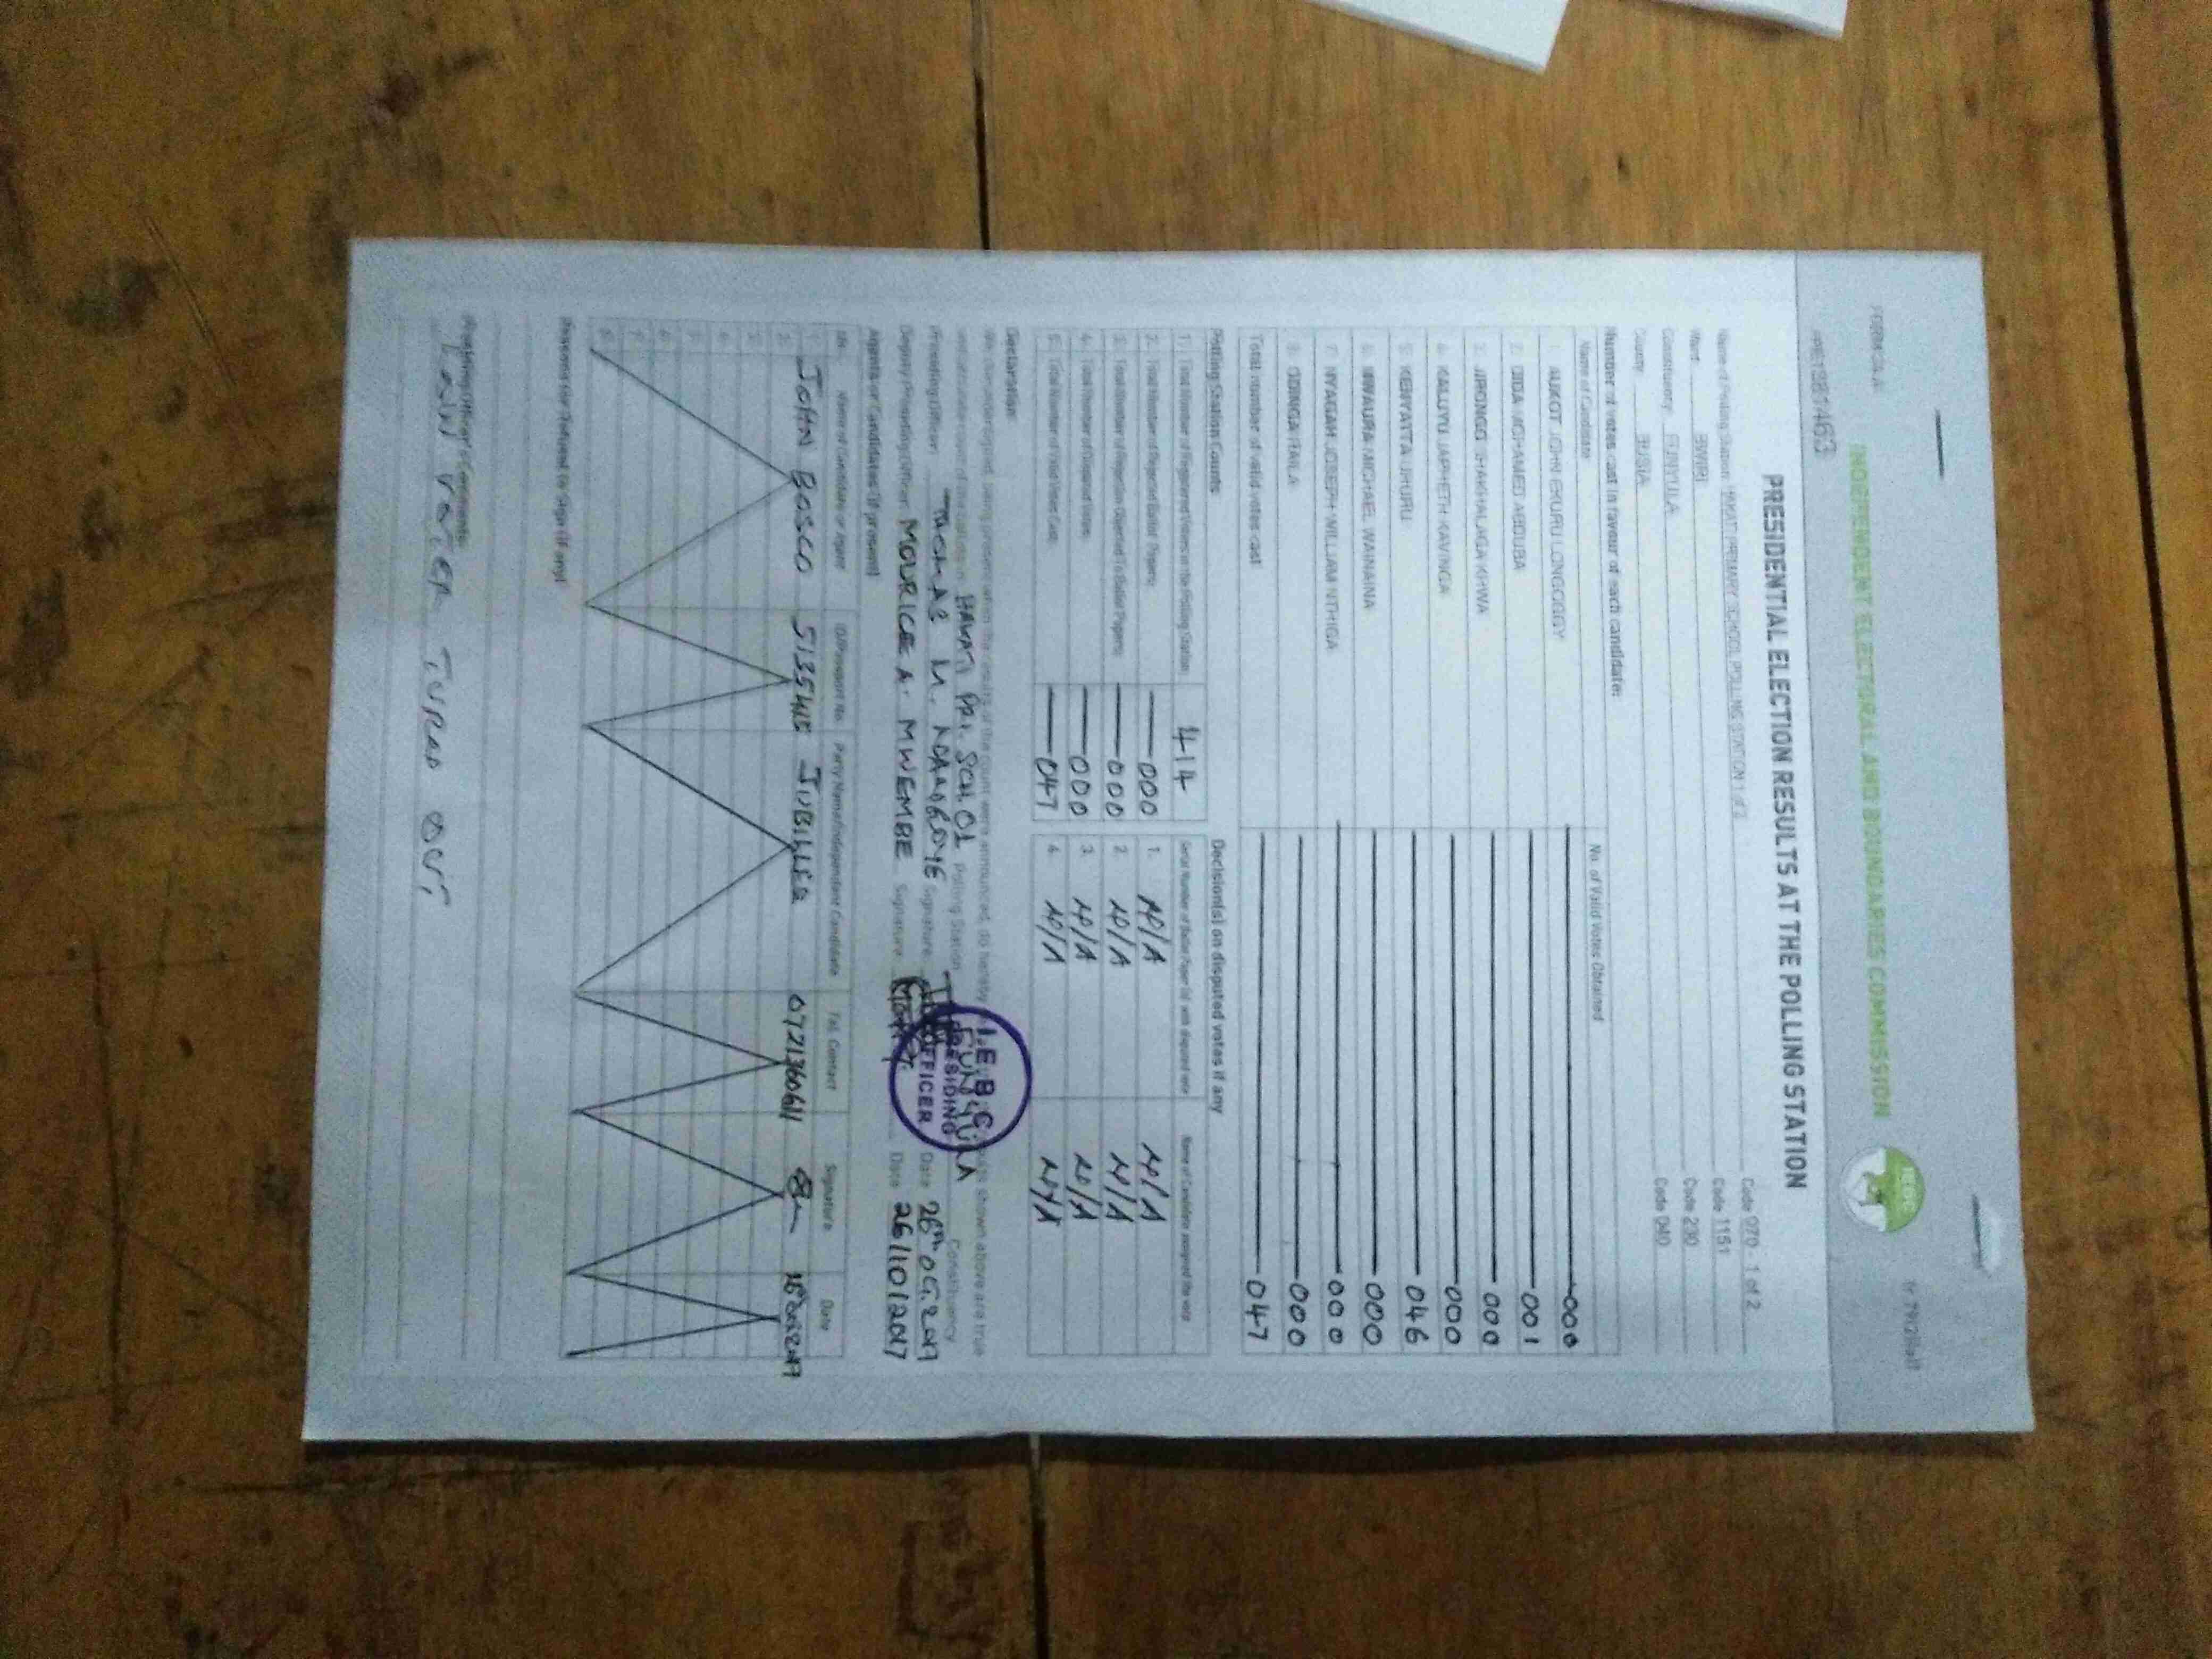 FORM 34A
INDEPENDENT ELECTORAL AND BOUNDARIES COMMISSION
PRESIDENTIAL ELECTION RESULTS AT THE POLLING STATION
Name of Polling Station HAKATI PRIMARY SCHOOL POLLING STATION 1 of 2 Code 070 1 of 2
Ward BWIRI Code 1151
Constituency FUNYULA Code 230
County BUSIA Code 040
Number of votes cast in favour of each candidate:
Name of Candidate No. of Valid Votes Obtained
1. AUKOT JOHN EKURU LONGOGGY 000
2. DIDA MOHAMED ABDUBA 001
3. JIRONGO SHAKHALAGA KHWA 000
4. KALUYU JAPHETH KAVINGA 000
5. KENYATTA UHURU 046
6. MWAURA MICHAEL WAINAINA 000
7. NYAGAH JOSEPH WILLIAM NTHIGA 000
8. ODINGA RAILA 000
Total number of valid votes cast 047
Polling Station Counts
1. Total Number of Registered Voters in the Polling Station 414
2. Total Number of Rejected Ballot Papers 000
3. Total Number of Rejection Objected To Ballot Papers 000
4. Total Number of Disputed Votes 000
5. Total Number of Valid Votes Cast 047
Decision(s) on disputed votes if any
Serial Number of Ballot Paper (s) with disputed vote Name of Candidate assigned the vote
1. N/A N/A
2. N/A N/A
3. N/A N/A
4. N/A N/A
Declaration
We the undersigned, being present when the results of the count were announced, do hereby shown above are true
and accurate count of the ballots in HAKATI PRI. SCH. 01 Polling Station FUNYULA Constituency
Presiding Officer Signature Date 26th OCT. 2017
Deputy Presiding Officer MOURICE A. MWEMBE Signature Date 26/10/2017
I.E.B.C
PRESIDING
OFFICER
Agents or Candidates (if present)
No. Name of Candidate or agent ID/Passport No. Party Name/Independent Candidate Tel. Contact Signature Date
1. JOHN BOSCO JUBILEE
2.
3.
4.
5.
6.
7.
8.
Reasons for Refusal to Sign (if any)
Presiding Officer's Comments
VOTER TURNED OUT.